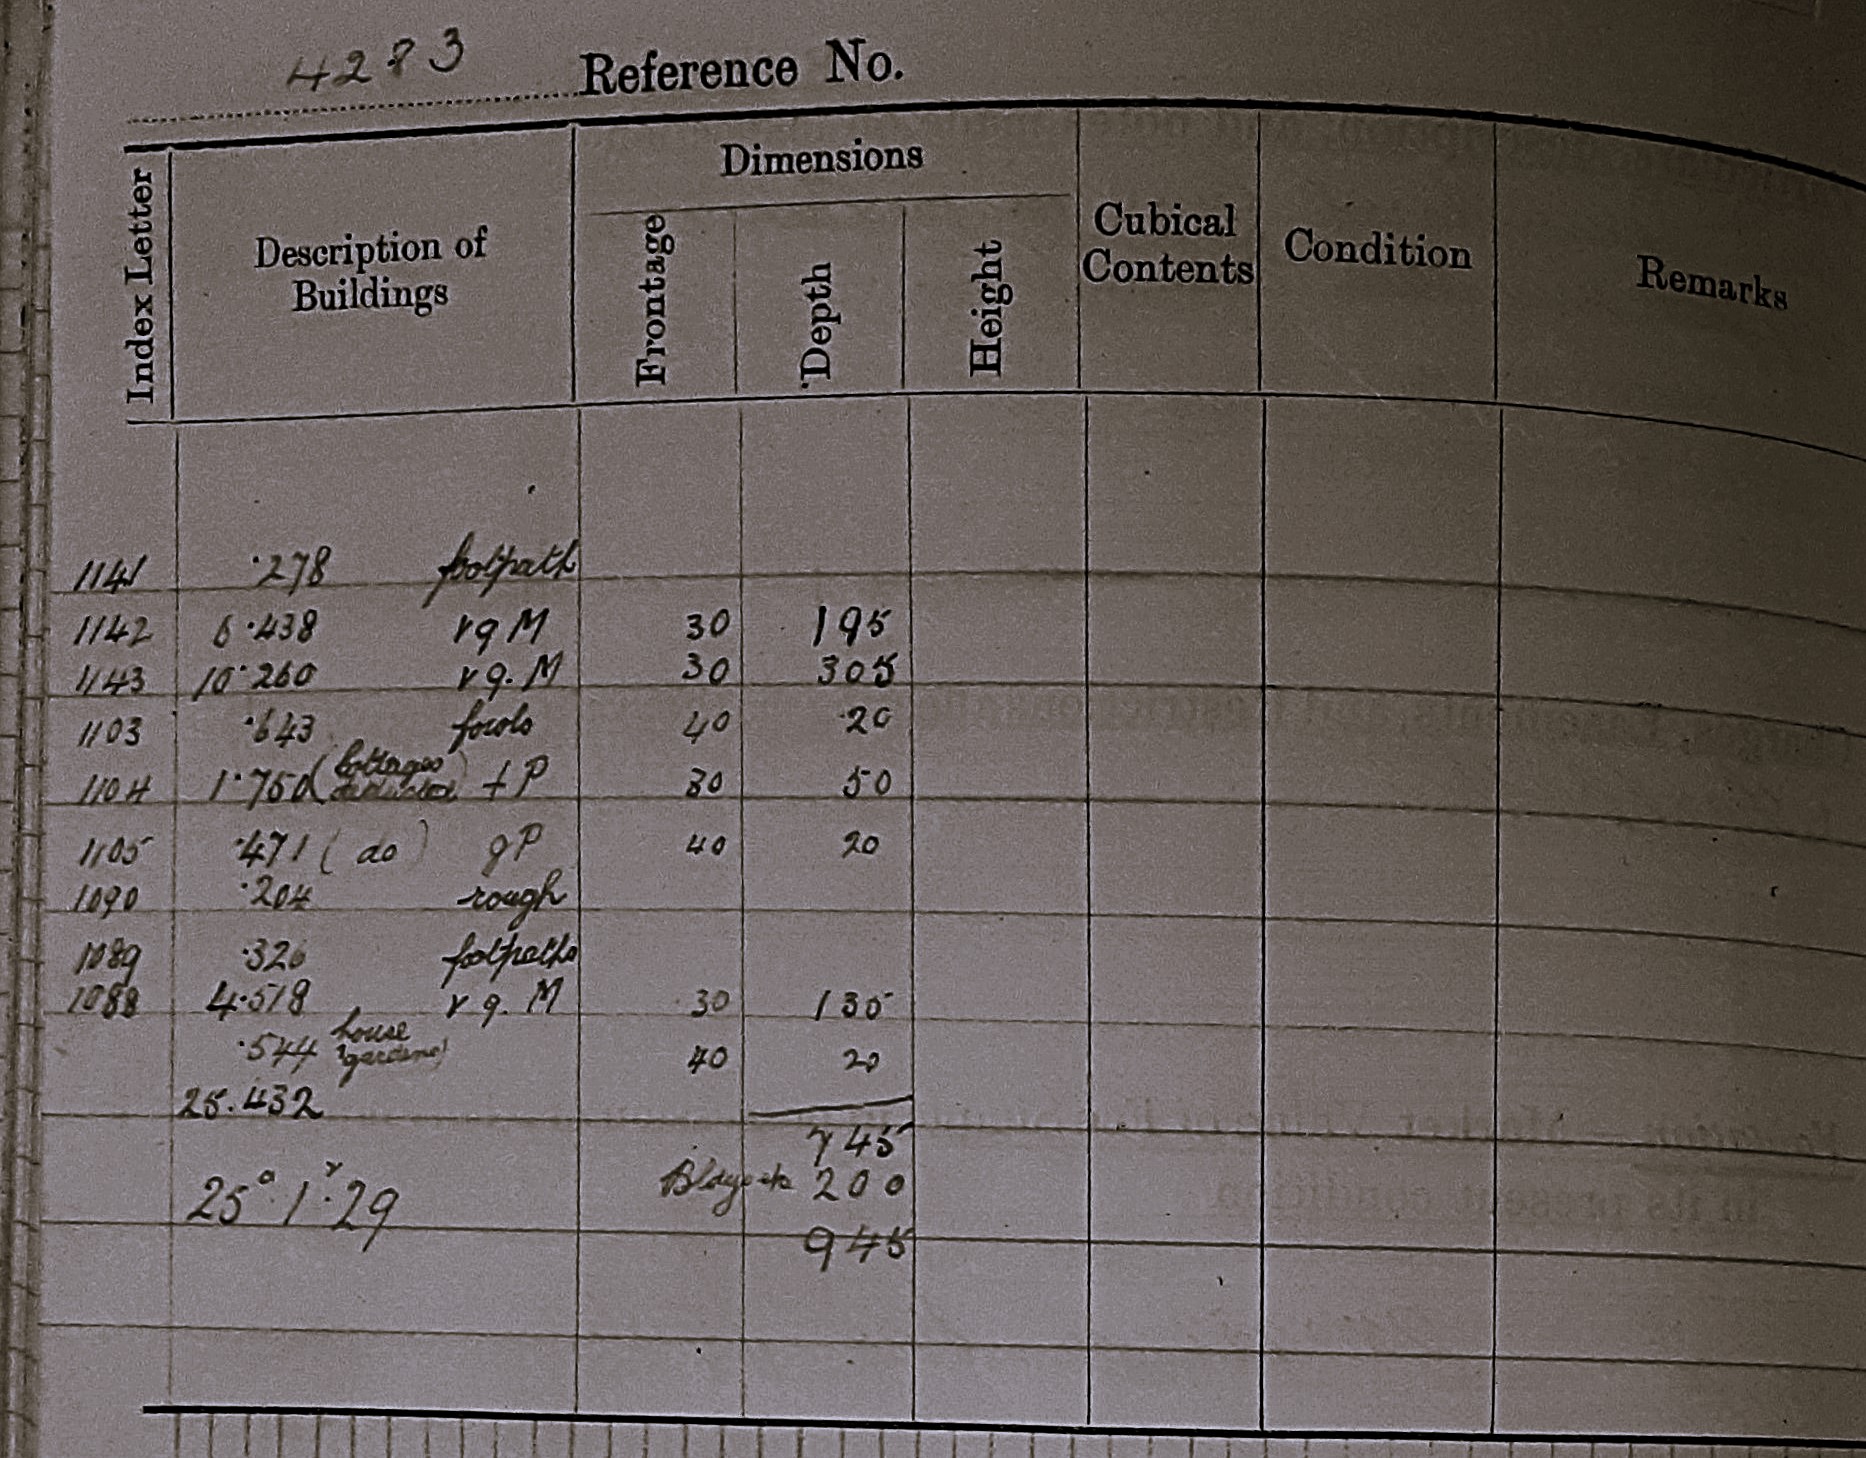 4283 Reference No.
Index Letter
Description of
Buildings
Dimensions
Frontage
Depth
Height
Cubical
Contents
Condition
Remarks
1141 .278 footpath
1142 6.438 rq M 30 195
1143 10.260 rq. M 30 305
1103 .643 fowls 40 20
1104 1.750 (Cottages deducted) + P 30 50
1105 .471 (do) gP 40 20
1090 .204 rough
1089 .326 footpaths
1088 4.518 rq. M 30 135
.544 house gardens) 40 20
25.432
745
25a.1r.29 200
945